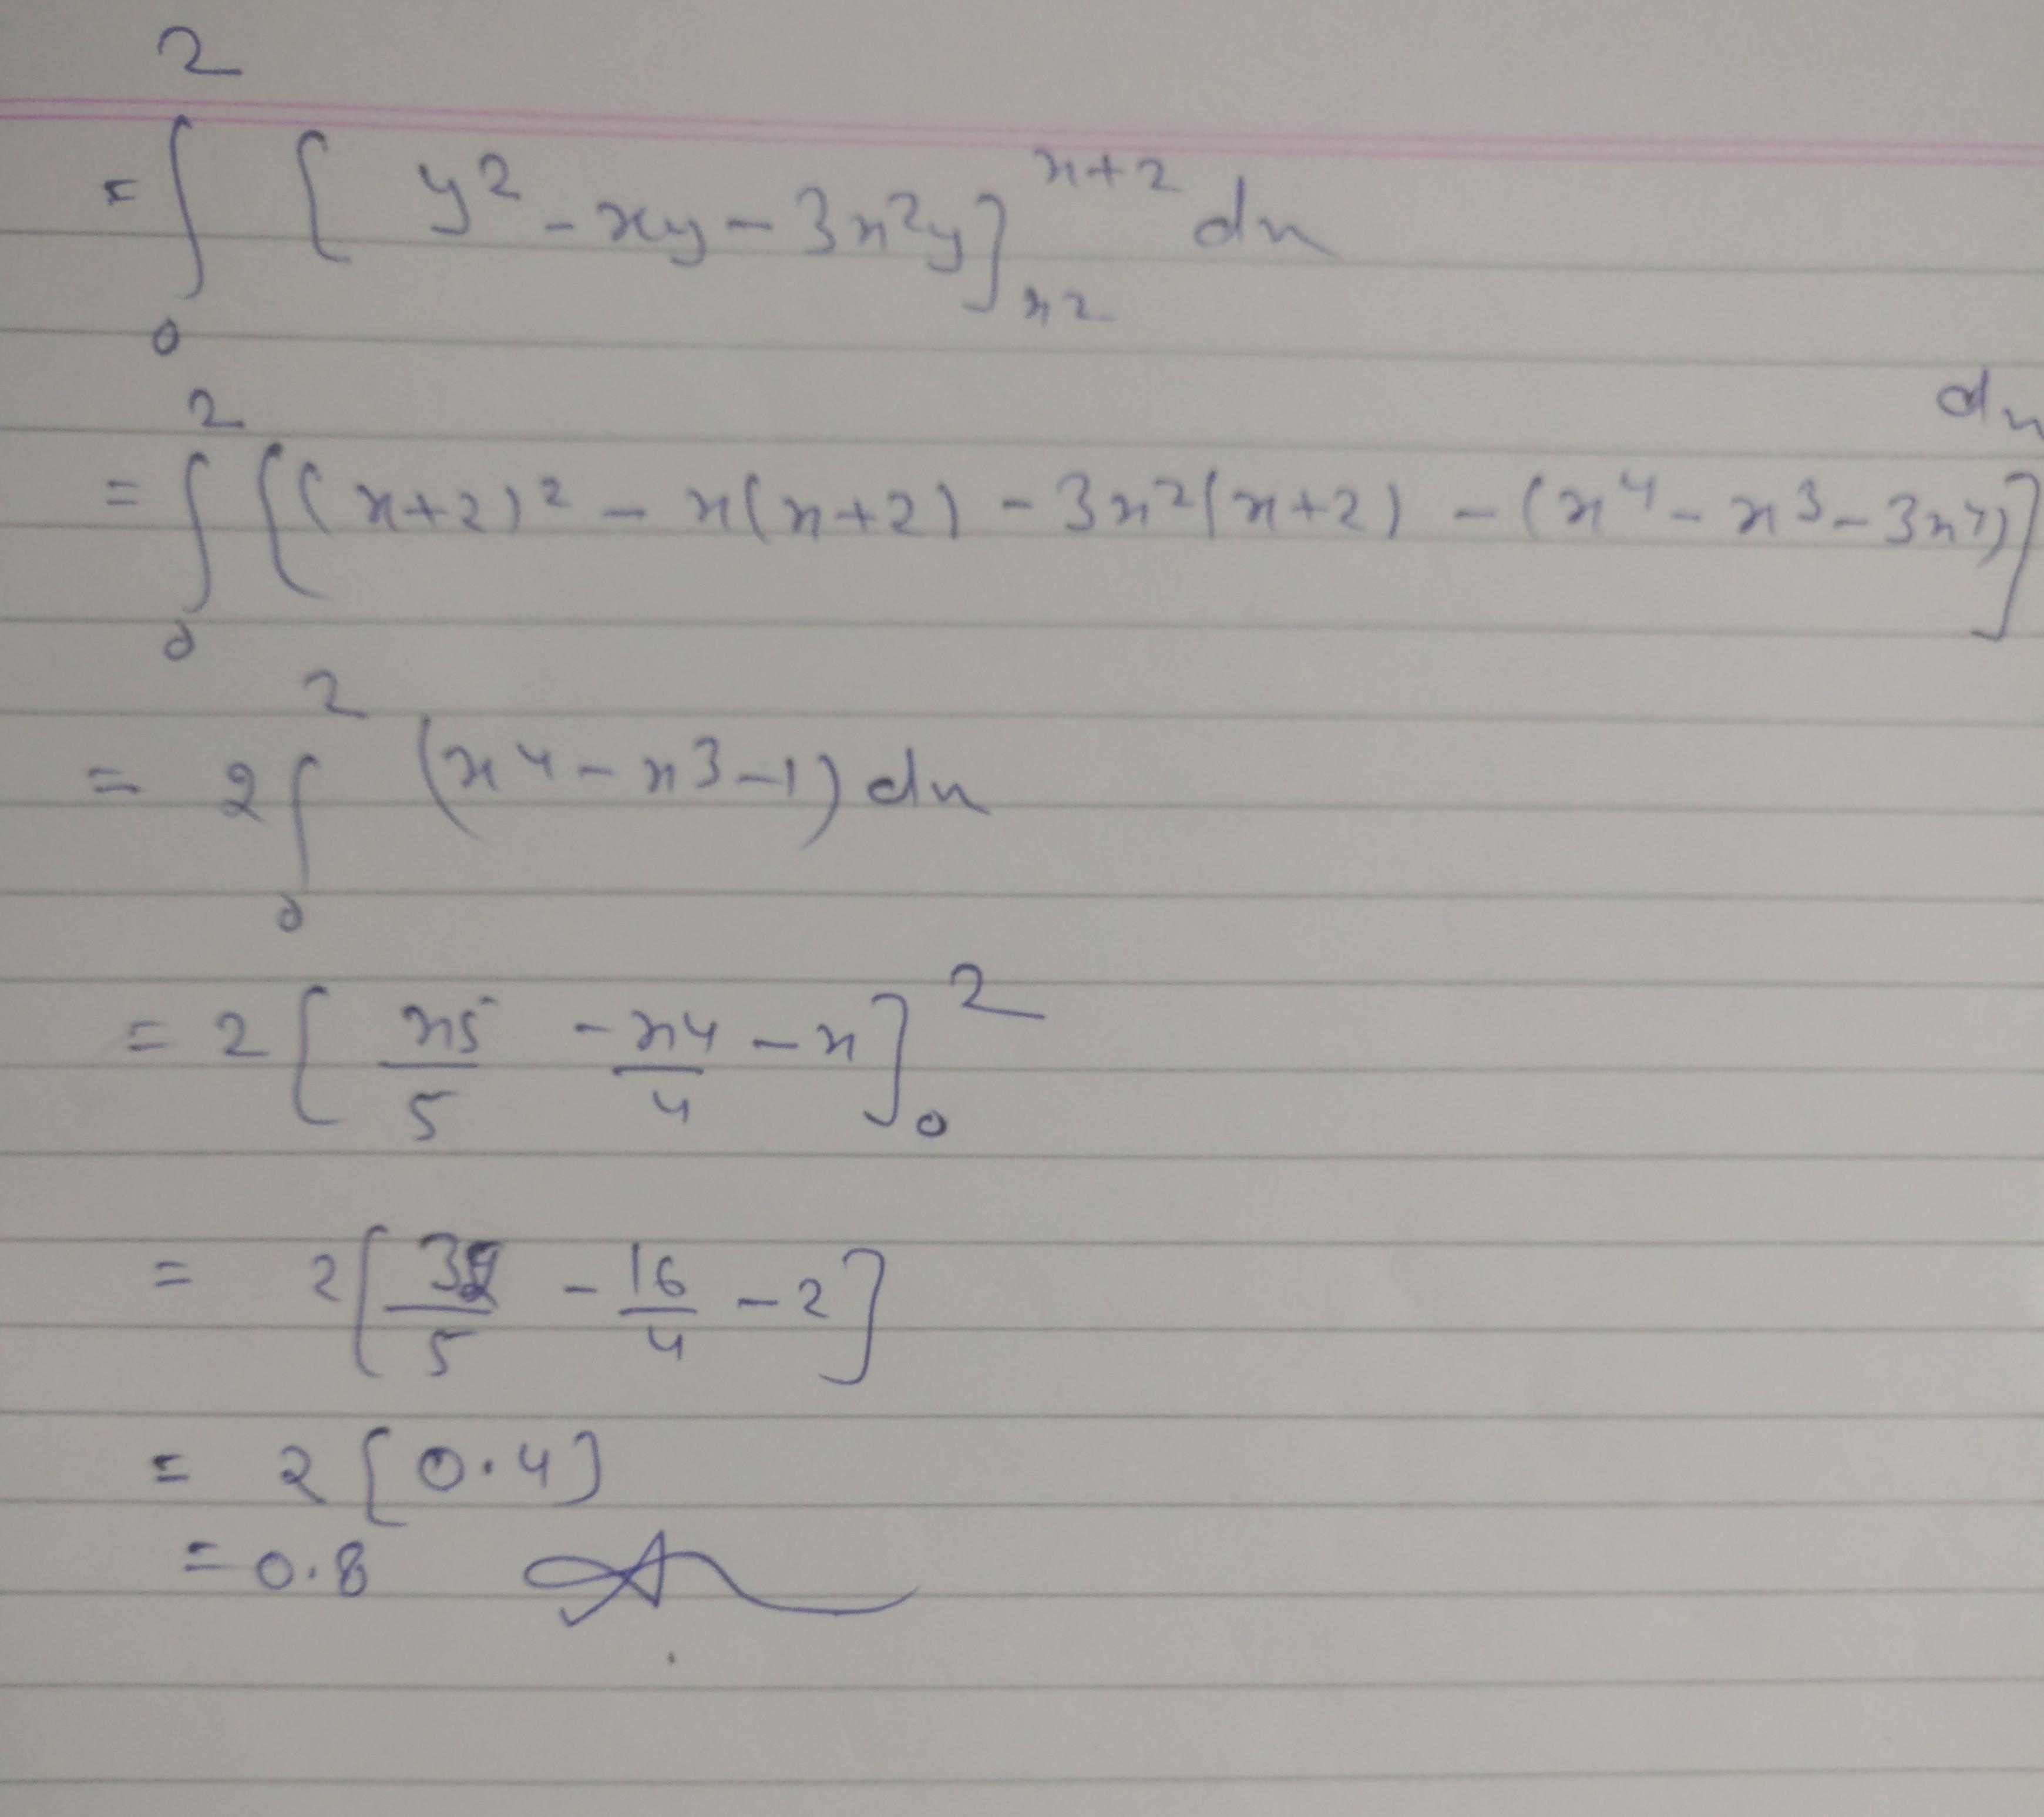 = ∫₀² [y² - xy - 3x²y]ₓ₂ˣ⁺² dx
= ∫₀² [(x+2)² - x(x+2) - 3x²(x+2) - (x⁴ - x³ - 3x⁴)] dx
= 2 ∫₀² (x⁴ - x³ - 1) dx
= 2 [x5/5 - x4/4 - x]₀²
= 2 [32/5 - 16/4 - 2]
= 2 [0.4]
= 0.8